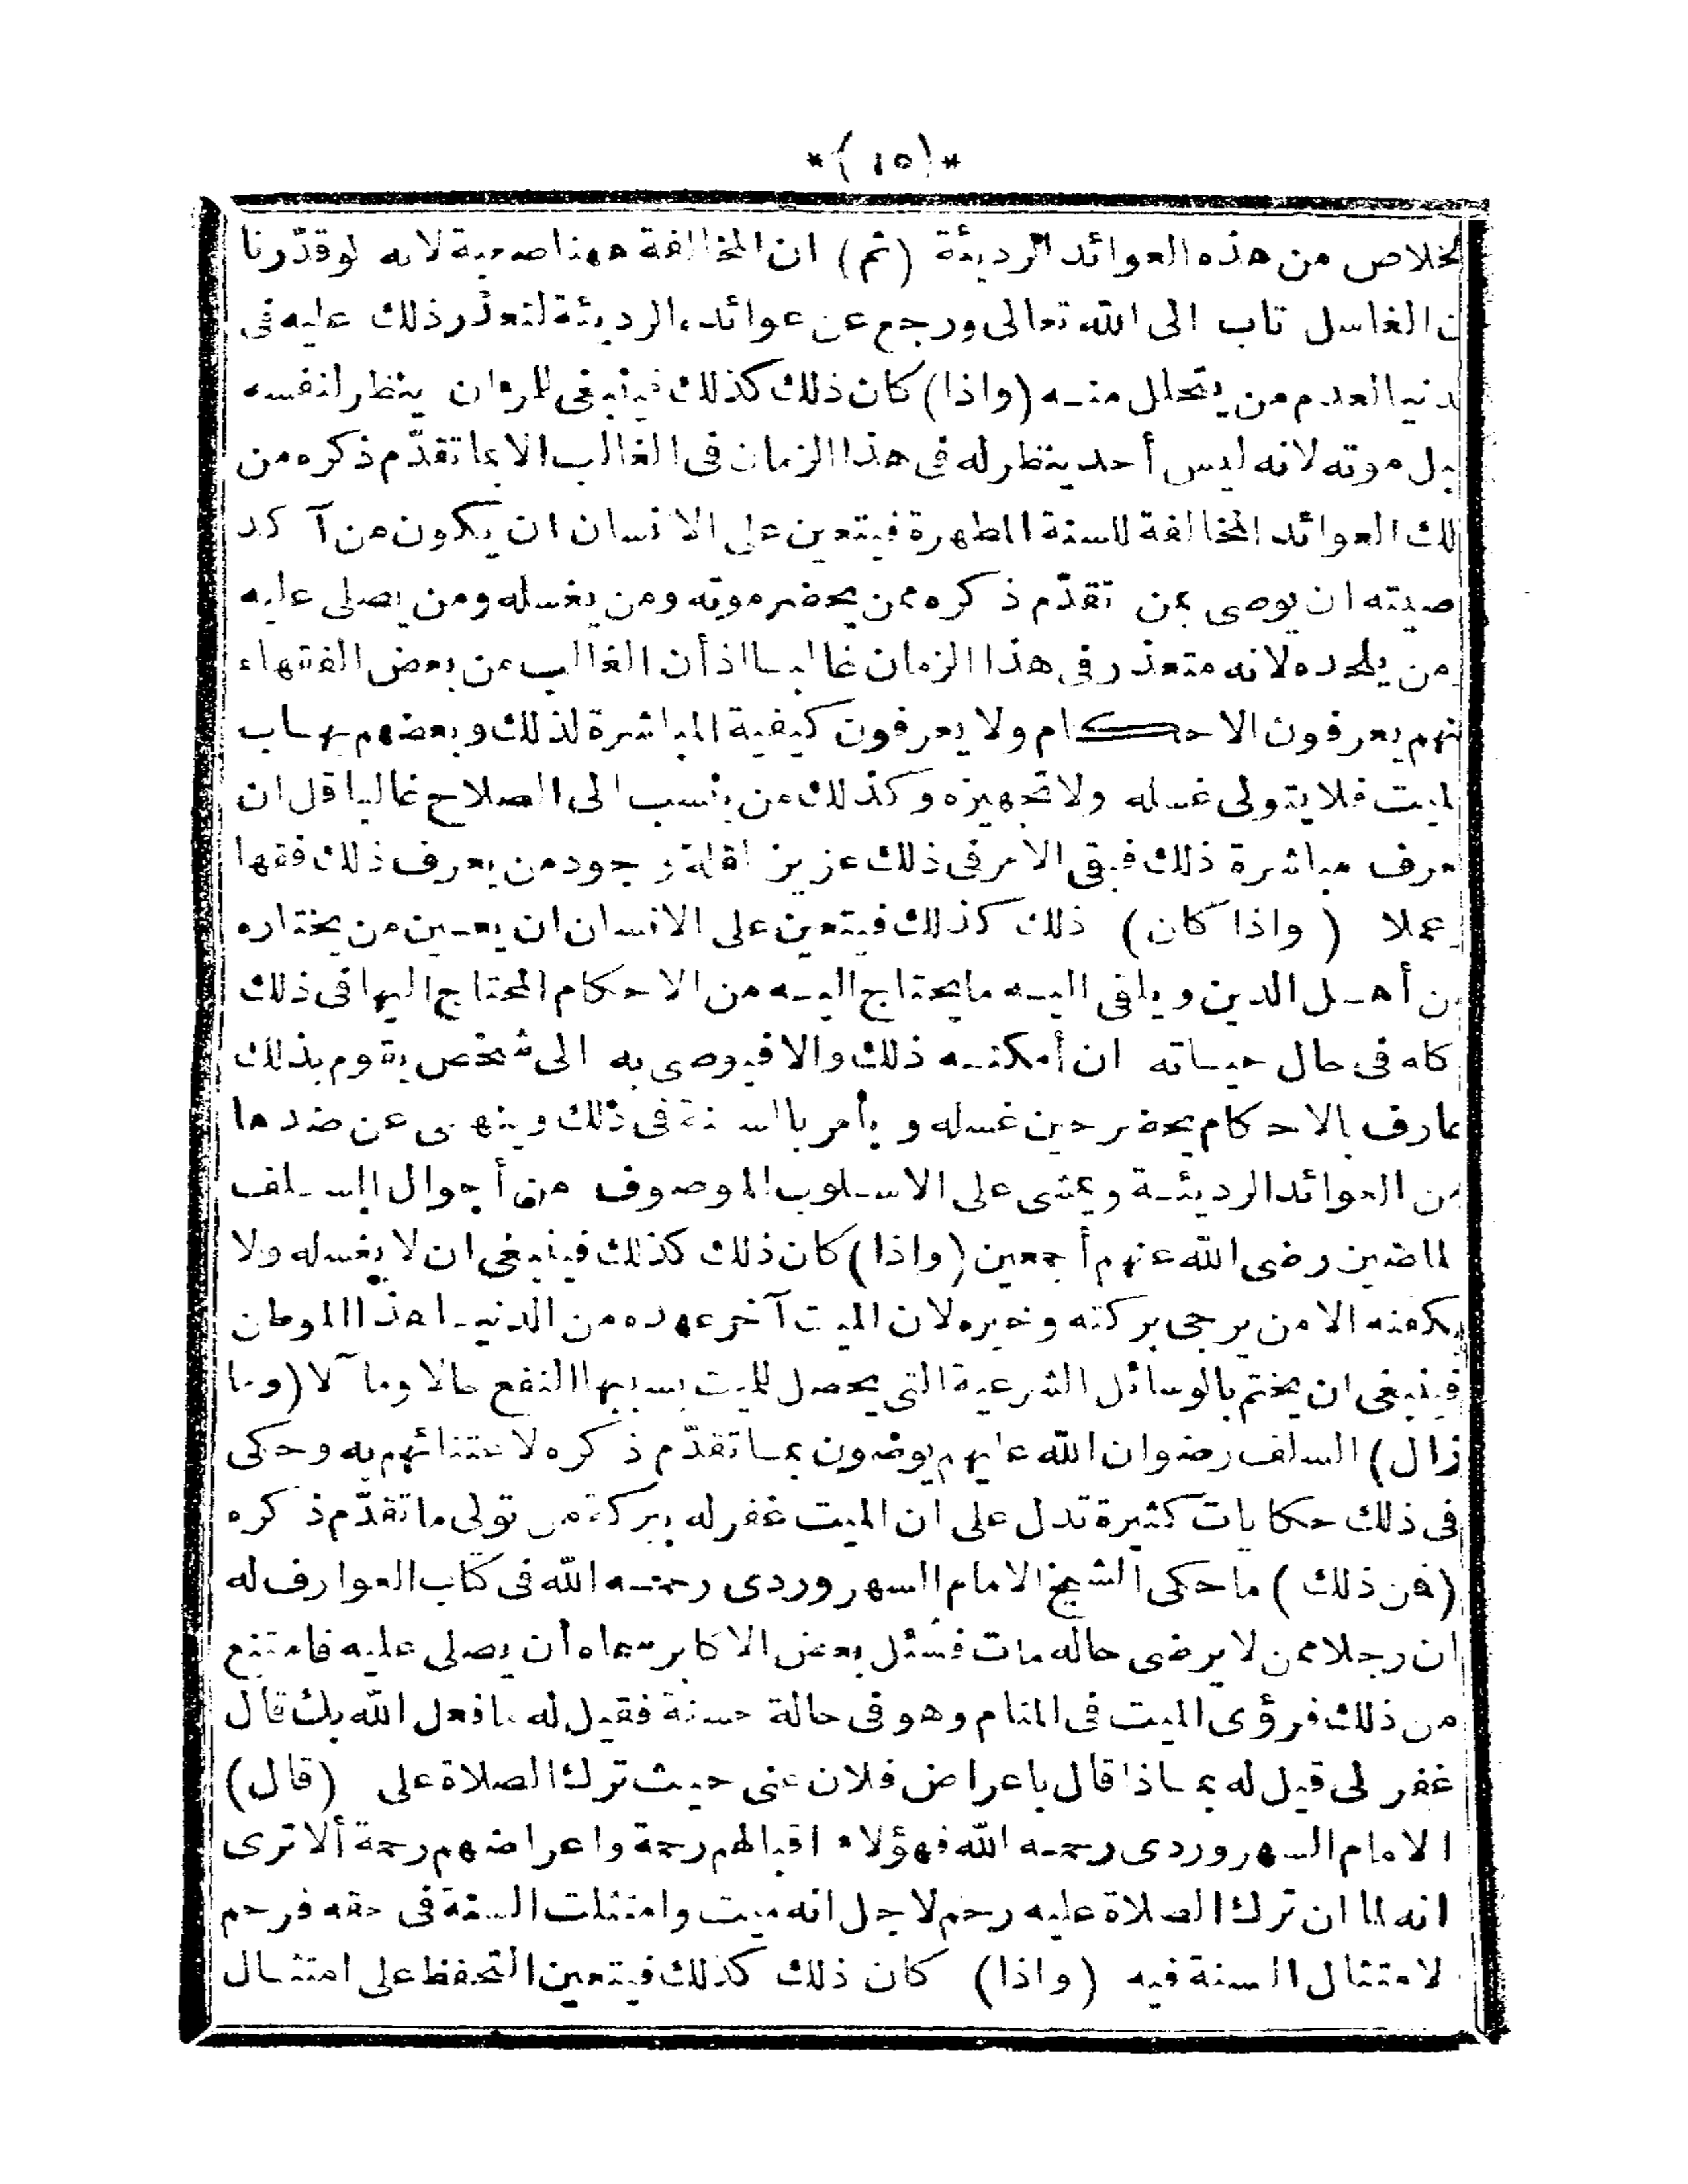 *(١٥)*
لخلاص من هذه العوائد الرديئة (ثم) ان المخالفة ههنا صعبة لانه لو قدّرنا
ن الغاسل تاب الى الله تعالى ورجع عن عوائده الرديئة لتعذر ذلك عليه فى
لدنيا لعدم من يتحلل منه (واذا) كان ذلك كذلك فينبغى للمرء ان ينظر لنفسه
بل موته لانه ليس أحد ينظر له فى هذا الزمان فى الغالب الا بما تقدّم ذكره من
لك العوائد المخالفة للسنة المطهرة فيتعين على الانسان ان يكون من آكد
صيته ان يوصى بمن تقدّم ذكره ممن يحضر موته ومن يغسله ومن يصلى عليه
من يلحده لانه متعذر فى هذا الزمان غالبا اذ أن الغالب من بعض الفقهاء
نهم يعرفون الاحكام ولا يعرفون كيفية المباشرة لذلك وبعضهم يهاب
لميت فلا يتولى غسله ولا تجهيزه وكذلك من ينسب الى الصلاح غالبا قل ان
عرف مباشرة ذلك فبقى الامر فى ذلك عزيز القلة وجود من يعرف ذلك فقها
عملا (واذا كان) ذلك كذلك فيتعين على الانسان ان يعين من يختاره
ن أهل الدين ويلقى اليه ما يحتاج اليه من الاحكام المحتاج اليها فى ذلك
كله فى حال حياته ان أمكنه ذلك والا فيوصى به الى شخص يقوم بذلك
عارف بالاحكام يحضر حين غسله ويأمر بالسنة فى ذلك وينهى عن ضدها
من العوائد الرديئة ويمشى على الاسلوب الموصوف من أحوال السلف
لماضين رضى الله عنهم أجمعين (واذا) كان ذلك كذلك فينبغى ان لا يغسله ولا
يكفنه الا من يرجى بركته وخيره لان الميت آخر عهده من الدنيا هذا الموطن
فينبغى ان يختم بالوسائل الشرعية التى يحصل للميت بسببها النفع حالا ومآلا (وما
زال) السلف رضوان الله عليهم يوصون بما تقدّم ذكره لاعتنائهم به وحكى
فى ذلك حكايات كثيرة تدل على ان الميت غفر له ببركة من تولى ما تقدّم ذكره
(فمن ذلك) ما حكى الشيخ الامام السهروردى رحمه الله فى كتاب العوارف له
ان رجلا ممن لا يرضى حاله مات فسئل بعض الاكابر سماه أن يصلى عليه فامتنع
من ذلك فرؤى الميت فى المنام وهو فى حالة حسنة فقيل له ما فعل الله بك قال
غفر لى قيل له بماذا قال باعراض فلان عنى حيث ترك الصلاة على (قال)
الامام السهروردى رحمه الله فهؤلاء اقبالهم رحمة واعراضهم رحمة ألا ترى
انه لما ان ترك الصلاة عليه رحم لاجل انه ميت وامتثلت السنة فى حقه فرحم
لامتثال السنة فيه (واذا) كان ذلك كذلك فيتعين التحفظ على امتثال